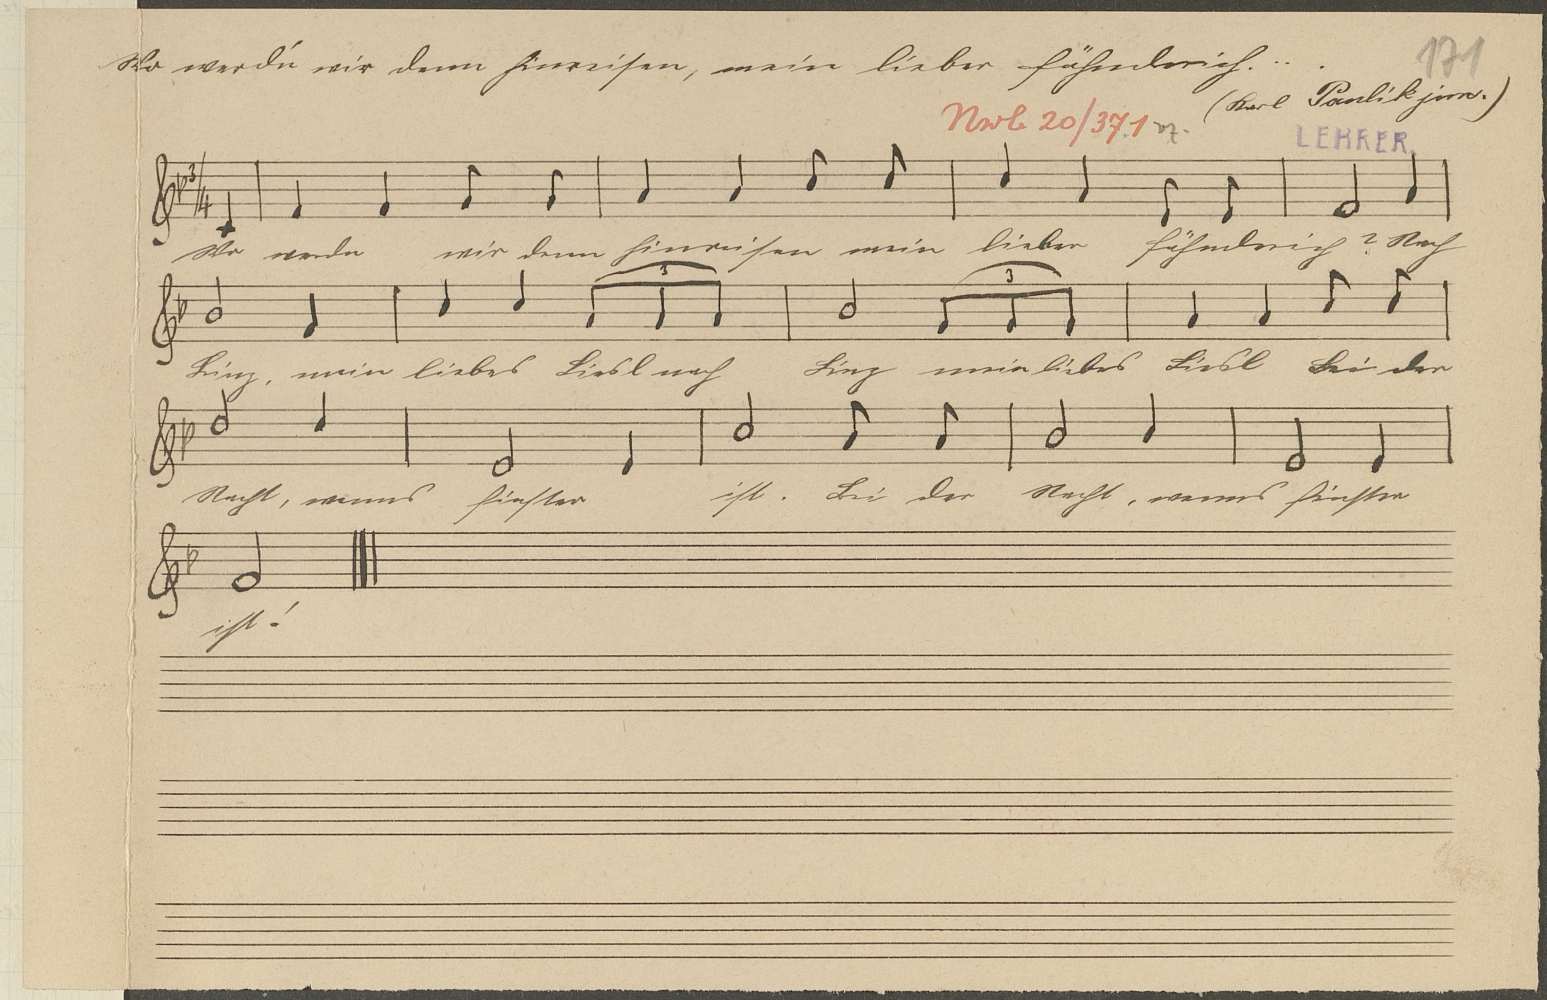 Wo werd'n wir denn hinreisen, mein lieber Fähnderich. . . .
171
(Karl Paulik jun.)
Nwb 20/371
LEHRER.
3/4
Wo werdn wir denn hinreisen mein lieber Fähnderich? Nach
3 3
Linz, mein liebes Liesl nach Linz mein liebes Liesl Bei der
Nacht, wenns finster ist. Bei der Nacht, wenns finster
ist!